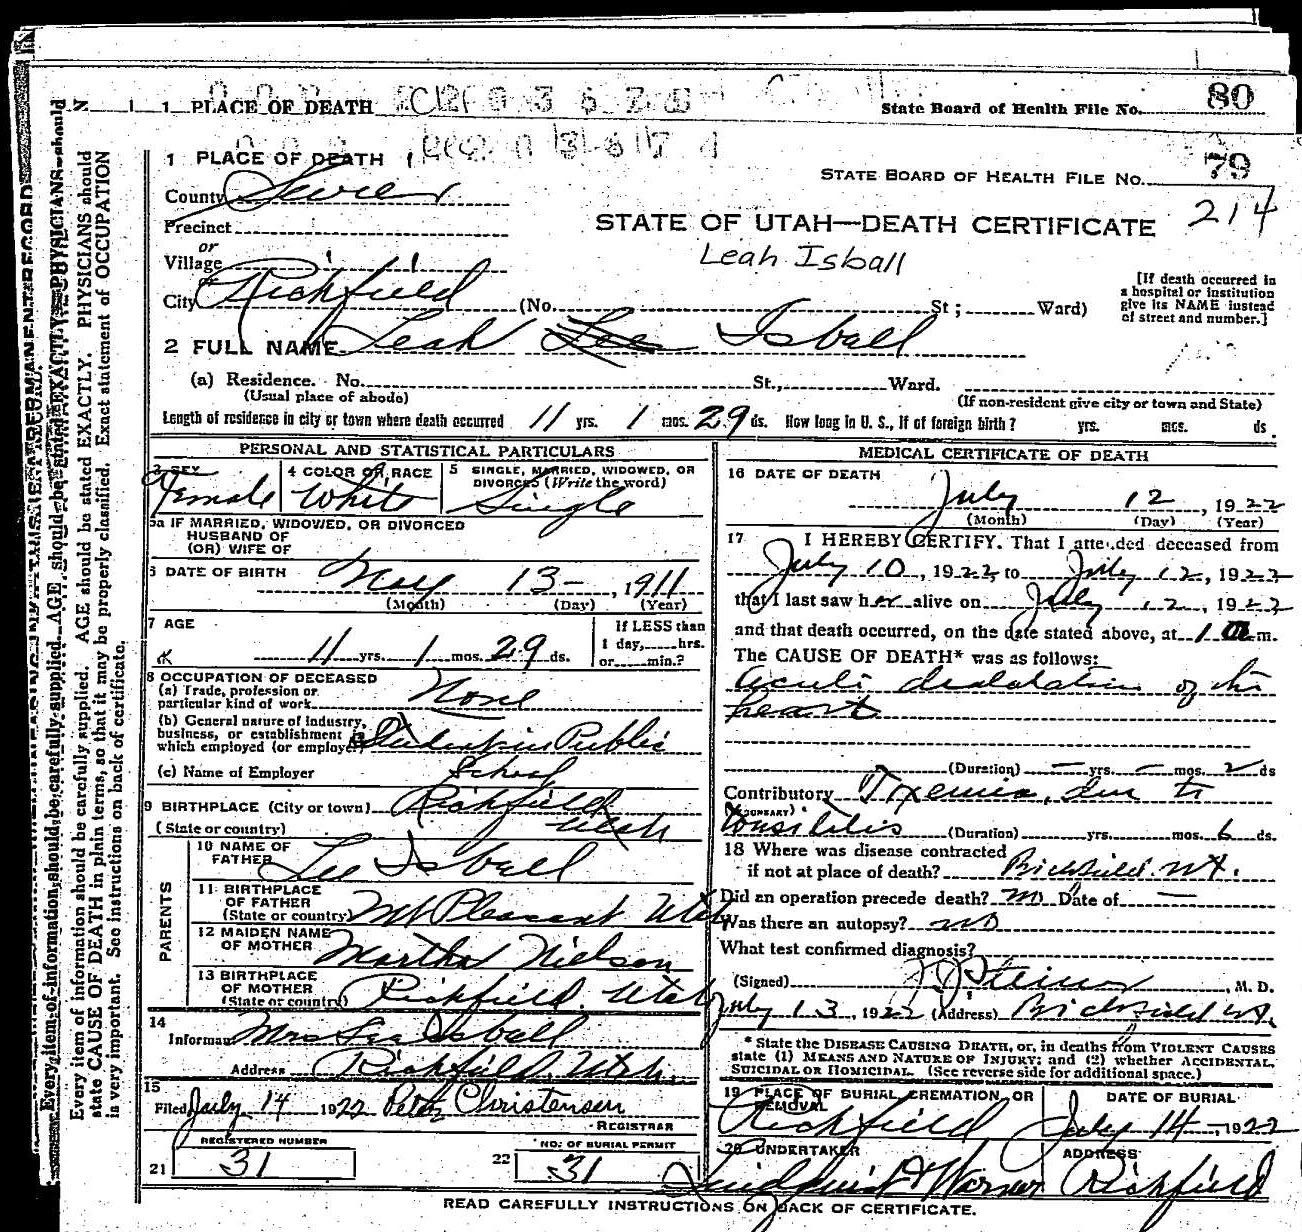 1 PLACE OF DEATH
State Board of Health File No. 80
1 PLACE OF DEATH
STATE BOARD OF HEALTH FILE NO. 79
County Sevier
214
Precinct
STATE OF UTAH—DEATH CERTIFICATE
or
Village
Leah Isball
or
City Richfield (No. St; Ward)
[If death occurred in a hospital or institution give its NAME instead of street and number.]
2 FULL NAME Leah Lee Isball
(a) Residence. No. St., Ward.
(Usual place of abode) (If non-resident give city or town and State)
Length of residence in city or town where death occurred 11 yrs. 1 mos. 29 ds. How long in U. S., if of foreign birth? yrs. mos. ds.
PERSONAL AND STATISTICAL PARTICULARS
3 SEX Female
4 COLOR OR RACE White
5 SINGLE, MARRIED, WIDOWED, OR DIVORCED (Write the word) Single
5a IF MARRIED, WIDOWED, OR DIVORCED
HUSBAND OF
(OR) WIFE OF
6 DATE OF BIRTH May 13 - , 1911
(Month) (Day) (Year)
7 AGE
11 yrs. 1 mos. 29 ds.
If LESS than 1 day, hrs. or min.?
8 OCCUPATION OF DECEASED
(a) Trade, profession or particular kind of work None
(b) General nature of industry, business, or establishment in which employed (or employer) Student in Public
School
(c) Name of Employer
9 BIRTHPLACE (City or town) Richfield
(State or country) Utah
PARENTS
10 NAME OF FATHER Lee Isball
11 BIRTHPLACE OF FATHER (State or country) Mt Pleasant Utah
12 MAIDEN NAME OF MOTHER Martha Nielson
13 BIRTHPLACE OF MOTHER (State or country) Richfield, Utah
14
Informant Mrs Lee Isball
Address Richfield, Utah.
15
Filed July 14 1922 Peter Christensen
REGISTRAR
REGISTERED NUMBER
21 31
NO. OF BURIAL PERMIT
22 31
MEDICAL CERTIFICATE OF DEATH
16 DATE OF DEATH
July 12, 1922
(Month) (Day) (Year)
17 I HEREBY CERTIFY. That I attended deceased from
July 10, 1922, to July 12, 1922
that I last saw her alive on July 12, 1922
and that death occurred, on the date stated above, at 1 a m.
The CAUSE OF DEATH* was as follows:
Acute dialatation of the
heart
(Duration) - yrs. - mos. 2 ds
Contributory Toxemia, due to
(SECONDARY)
Tonsilitis (Duration) yrs. mos. 6 ds.
18 Where was disease contracted
if not at place of death? Richfield Ut.
Did an operation precede death? no Date of —
Was there an autopsy? no
What test confirmed diagnosis?
(Signed) J J Steiner, M. D.
July 13, 1922 (Address) Richfield Ut.
* State the DISEASE CAUSING DEATH, or, in deaths from VIOLENT CAUSES
state (1) MEANS AND NATURE OF INJURY; and (2) whether ACCIDENTAL,
SUICIDAL OR HOMICIDAL. (See reverse side for additional space.)
19 PLACE OF BURIAL, CREMATION, OR REMOVAL
Richfield
DATE OF BURIAL
July 14 -, 1922
20 UNDERTAKER
Lindquist & Warner
ADDRESS
Richfield
READ CAREFULLY INSTRUCTIONS ON BACK OF CERTIFICATE.
Every item of information should be carefully supplied. AGE should be stated EXACTLY. PHYSICIANS should
state CAUSE OF DEATH in plain terms, so that it may be properly classified. Exact statement of OCCUPATION
is very important. See instructions on back of certificate.